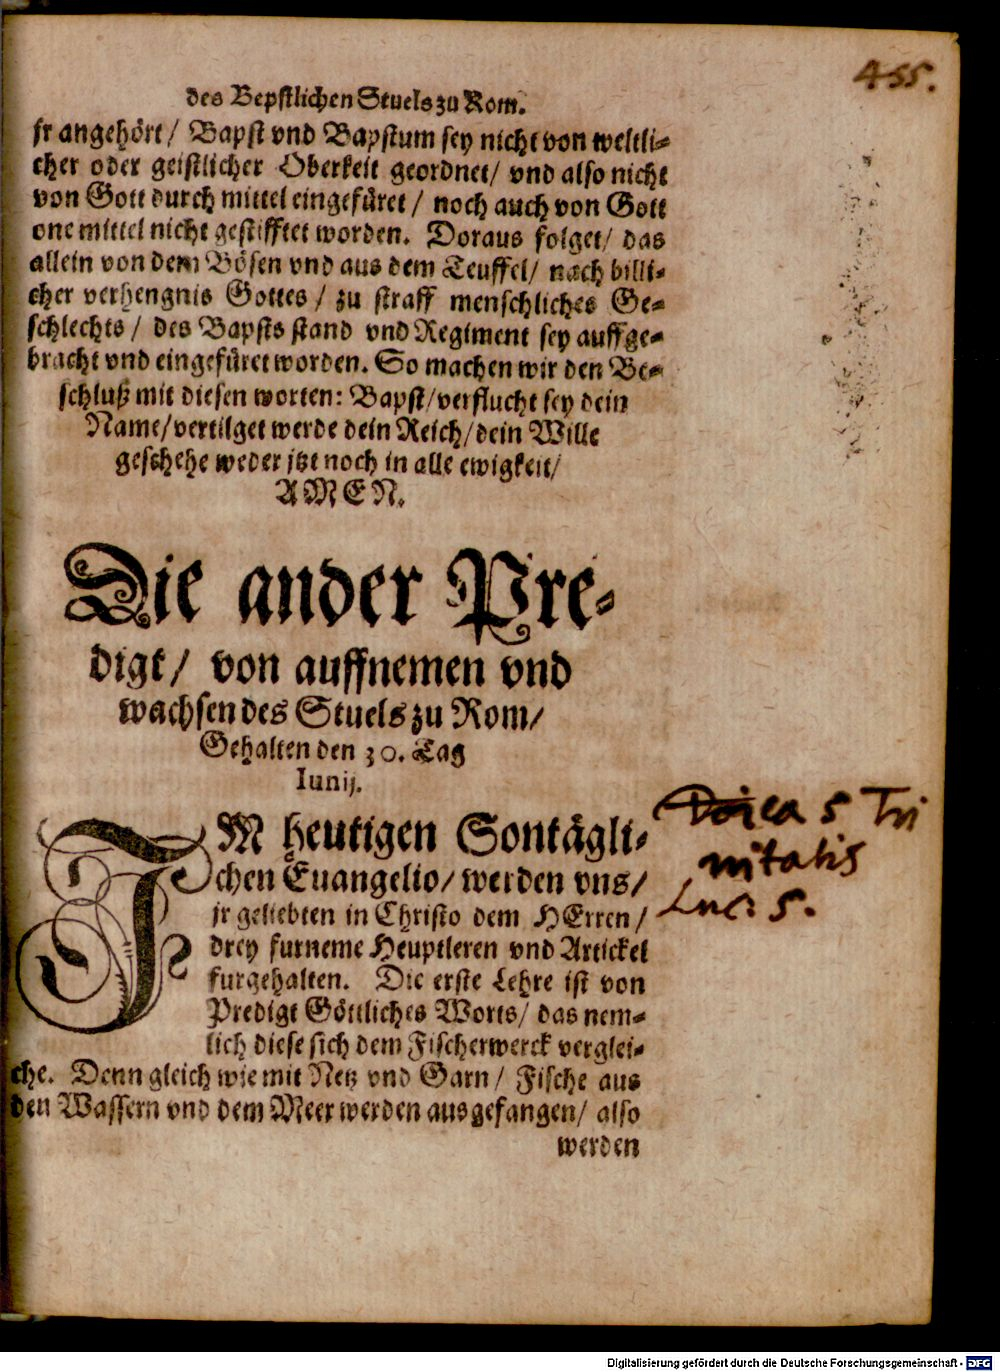 455.
des Bepstlichen Stuels zu Rom.
jr angehört / Bapst vnd Bapstum sey nicht von weltli-
cher oder geistlicher Oberkeit geordnet / vnd also nicht
von Gott durch mittel eingefüret / noch auch von Gott
one mittel nicht gestifftet worden. Doraus folget / das
allein von dem Bösen vnd aus dem Teuffel / nach billi-
cher verhengnis Gottes / zu straff menschliches Ge-
schlechts / des Bapsts stand vnd Regiment sey auffge-
bracht vnd eingefüret worden. So machen wir den Be-
schluß mit diesen worten: Bapst / verflucht sey dein
Name / vertilget werde dein Reich / dein Wille
geschehe weder jtzt noch in alle ewigkeit /
AMEN.
Die ander Pre-
digt / von auffnemen vnd
wachsen des Stuels zu Rom /
Gehalten den 30. Tag
Iunij.
IM heutigen Sontägli-
chen Euangelio / werden vns /
jr geliebten in Christo dem HErren /
drey furneme Heuptleren vnd Artickel
furgehalten. Die erste Lehre ist von
Predigt Göttliches Worts / das nem-
lich diese sich dem Fischerwerck verglei-
che. Denn gleich wie mit Netz vnd Garn / Fische aus
den Wassern vnd dem Meer werden ausgefangen / also
werden
5 Tri
nitatis
Luc. 5.
Digitalisierung gefördert durch die Deutsche Forschungsgemeinschaft - DFG